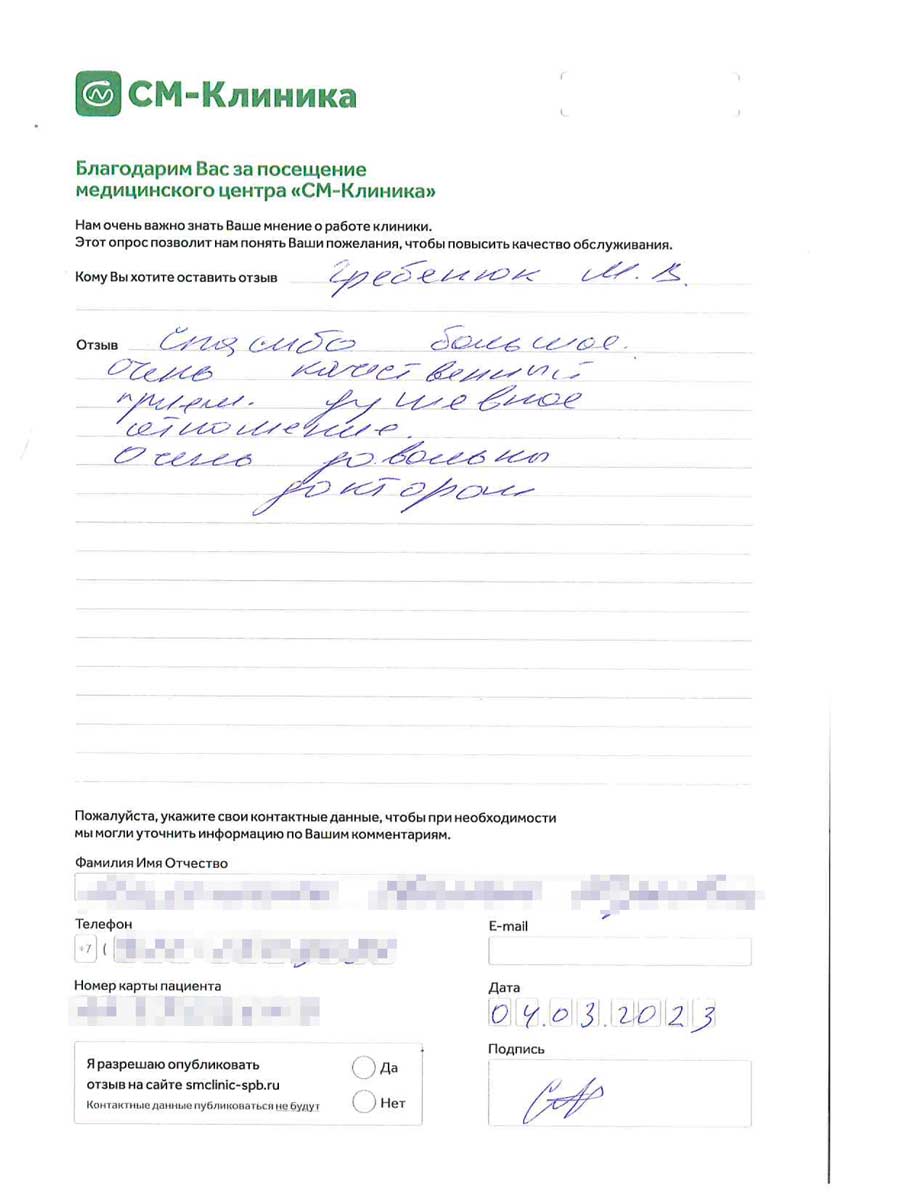 СМ-Клиника
Благодарим Вас за посещение
медицинского центра «СМ-Клиника»
Нам очень важно знать Ваше мнение о работе клиники.
Этот опрос позволит нам понять Ваши пожелания, чтобы повысить качество обслуживания.
Кому Вы хотите оставить отзыв Гребенюк М.В.
Отзыв Спасибо большое.
Очень качественный
прием. Душевное
отношение.
Очень довольны
доктором
Пожалуйста, укажите свои контактные данные, чтобы при необходимости
мы могли уточнить информацию по Вашим комментариям.
Фамилия Имя Отчество
Телефон
+7 (
E-mail
Номер карты пациента
Дата
04.03.2023
Подпись
Я разрешаю опубликовать
отзыв на сайте smclinic-spb.ru
Контактные данные публиковаться не будут
Да
Нет